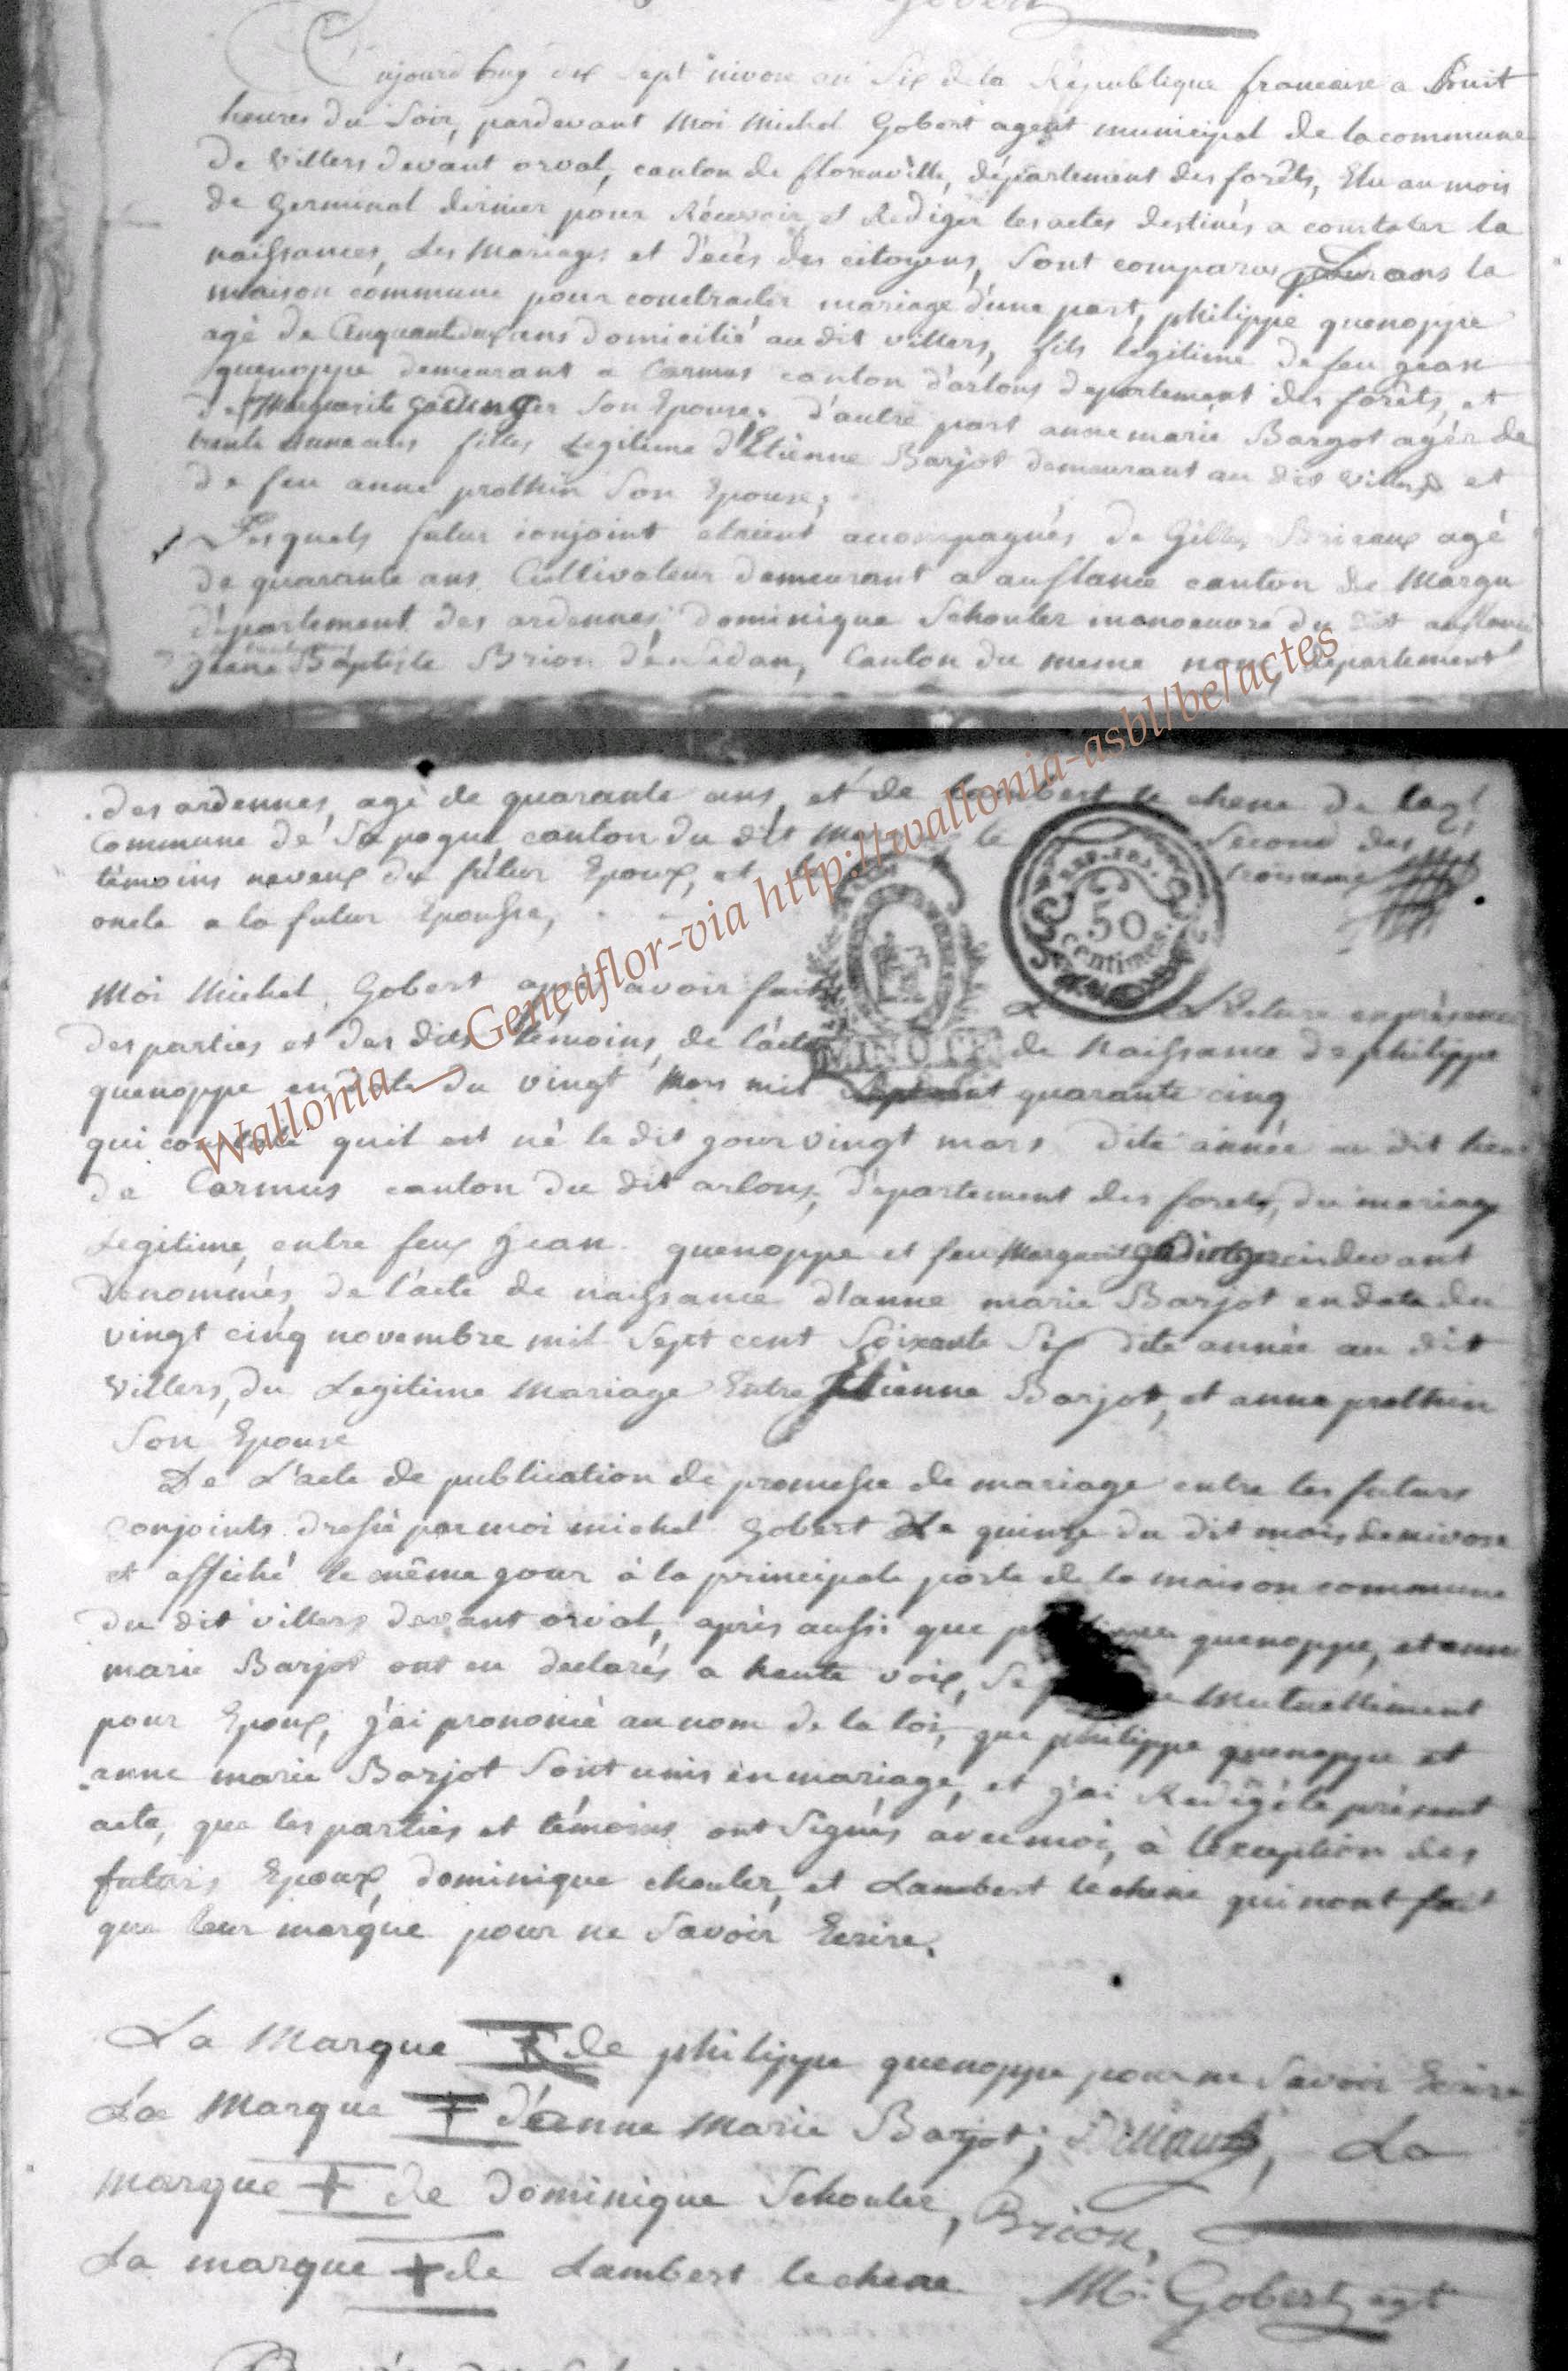 Gobert
Cujourdhuy dix Sept nivose an Six de la République francaise a huit
heures du Soir, pardevant Moi Michel Gobert agent municipal de la commune
de Villers devant orval, canton de florenville, département des forêts, Elu au mois
de Germinal dernier pour Récevoir et Rediger les actes destinés a constater la
naissances, des Mariages et décés des citoyens, Sont comparus dans la
maison commune pour contracter mariage d'une part, philippe quenoppe
agé de Cinquantedeux ans domicilié au dit villers, fils legitime de feu gean
quenoppe demeurant a Carmus canton d'arlons departement des forêts, et
de Marguerite Son Epouse, d'autre part anne marie Bargot agée de
trente ans filles Legitime d'Etienne Barjot demeurant au dit villers et
de feu anne prolhin Son Epouse;
Lesquels futur conjoint etaient accompagnés de Gilles agé
de quarante ans Cultivateur demeurant a auflance canton de Margu
département des ardennes, dominique Schouler manoeuvre du dit auflance
Baptiste Brion de Sedan, Canton du meme nom, département
des ardennes, agé de quarante ans, et de Lambert le chene de
Commune de Sapogne canton du dit le Second des
témoins neveux du fûtur Epoux, et troisieme
oncle a la futur Epousse,
Moi Michel Gobert après avoir fait Lecture en présence
des parties et des dits témoins, de l'acte de Naissance de philippe
quenoppe en date du vingt Mars mil Septcent quarante cinq
qui constate quil est né le dit gour vingt mars dite année au dit lieu
de Carmus canton du dit arlons, département des forets, du mariage
Legitime, entre feux gean quenoppe et feu Marguerite cidevant
denommés, de l'acte de naissance d'anne marie Barjot en date du
vingt cinq novembre mil Sept cent Soixante Six dite année au dit
Villers, du Legitime Mariage Entre Etienne Barjot, et anne prolhin
Son Epouse
De L'acte de publication de promesse de mariage entre les futurs
Conjoints dressé par moi michel Gobert Le quinze du dit mois de nivose
et affiché le même gour à la principale porte de la maison commune
du dit villers devant orval, après aussi que quenoppe, et anne
marie Barjot ont eu declarés a haute voix, Se Mutuellement
pour Epoux, j'ai prononcé au nom de la loi, que philippe quenoppe et
anne marie Barjot Sont unis en mariage, et j'ai Redigé le présent
acte, que les parties et témoins ont Signés avec moi, à l'exception des
futurs Epoux, dominique chouler, et Lambert lechene qui nont fait
que leur marque pour ne Savoir Ecrire.
La Marque + de philippe quenoppe pour ne Savoir Ecrire
La Marque + d'anne Marie Barjot; La
Marque + de Dominique Schouler, Brion,
La marque + de Lambert lechene M. Gobert agt
50
centimes
MINUTE
Wallonia__Geneaflor-via http://wallonia-asbl/be/actes